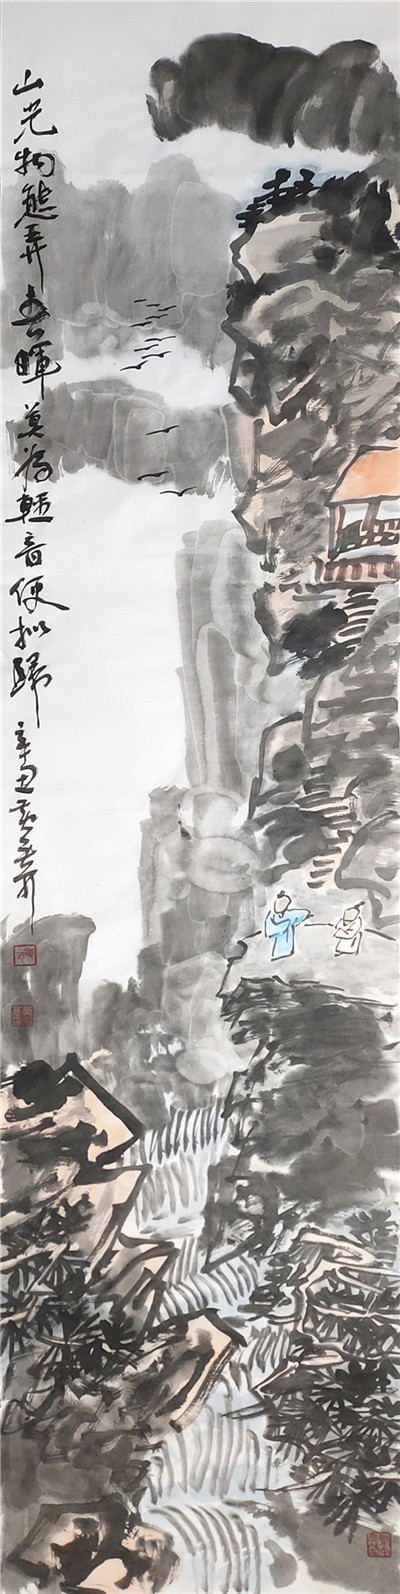 山光物態弄春暉莫為輕音便拟歸辛丑